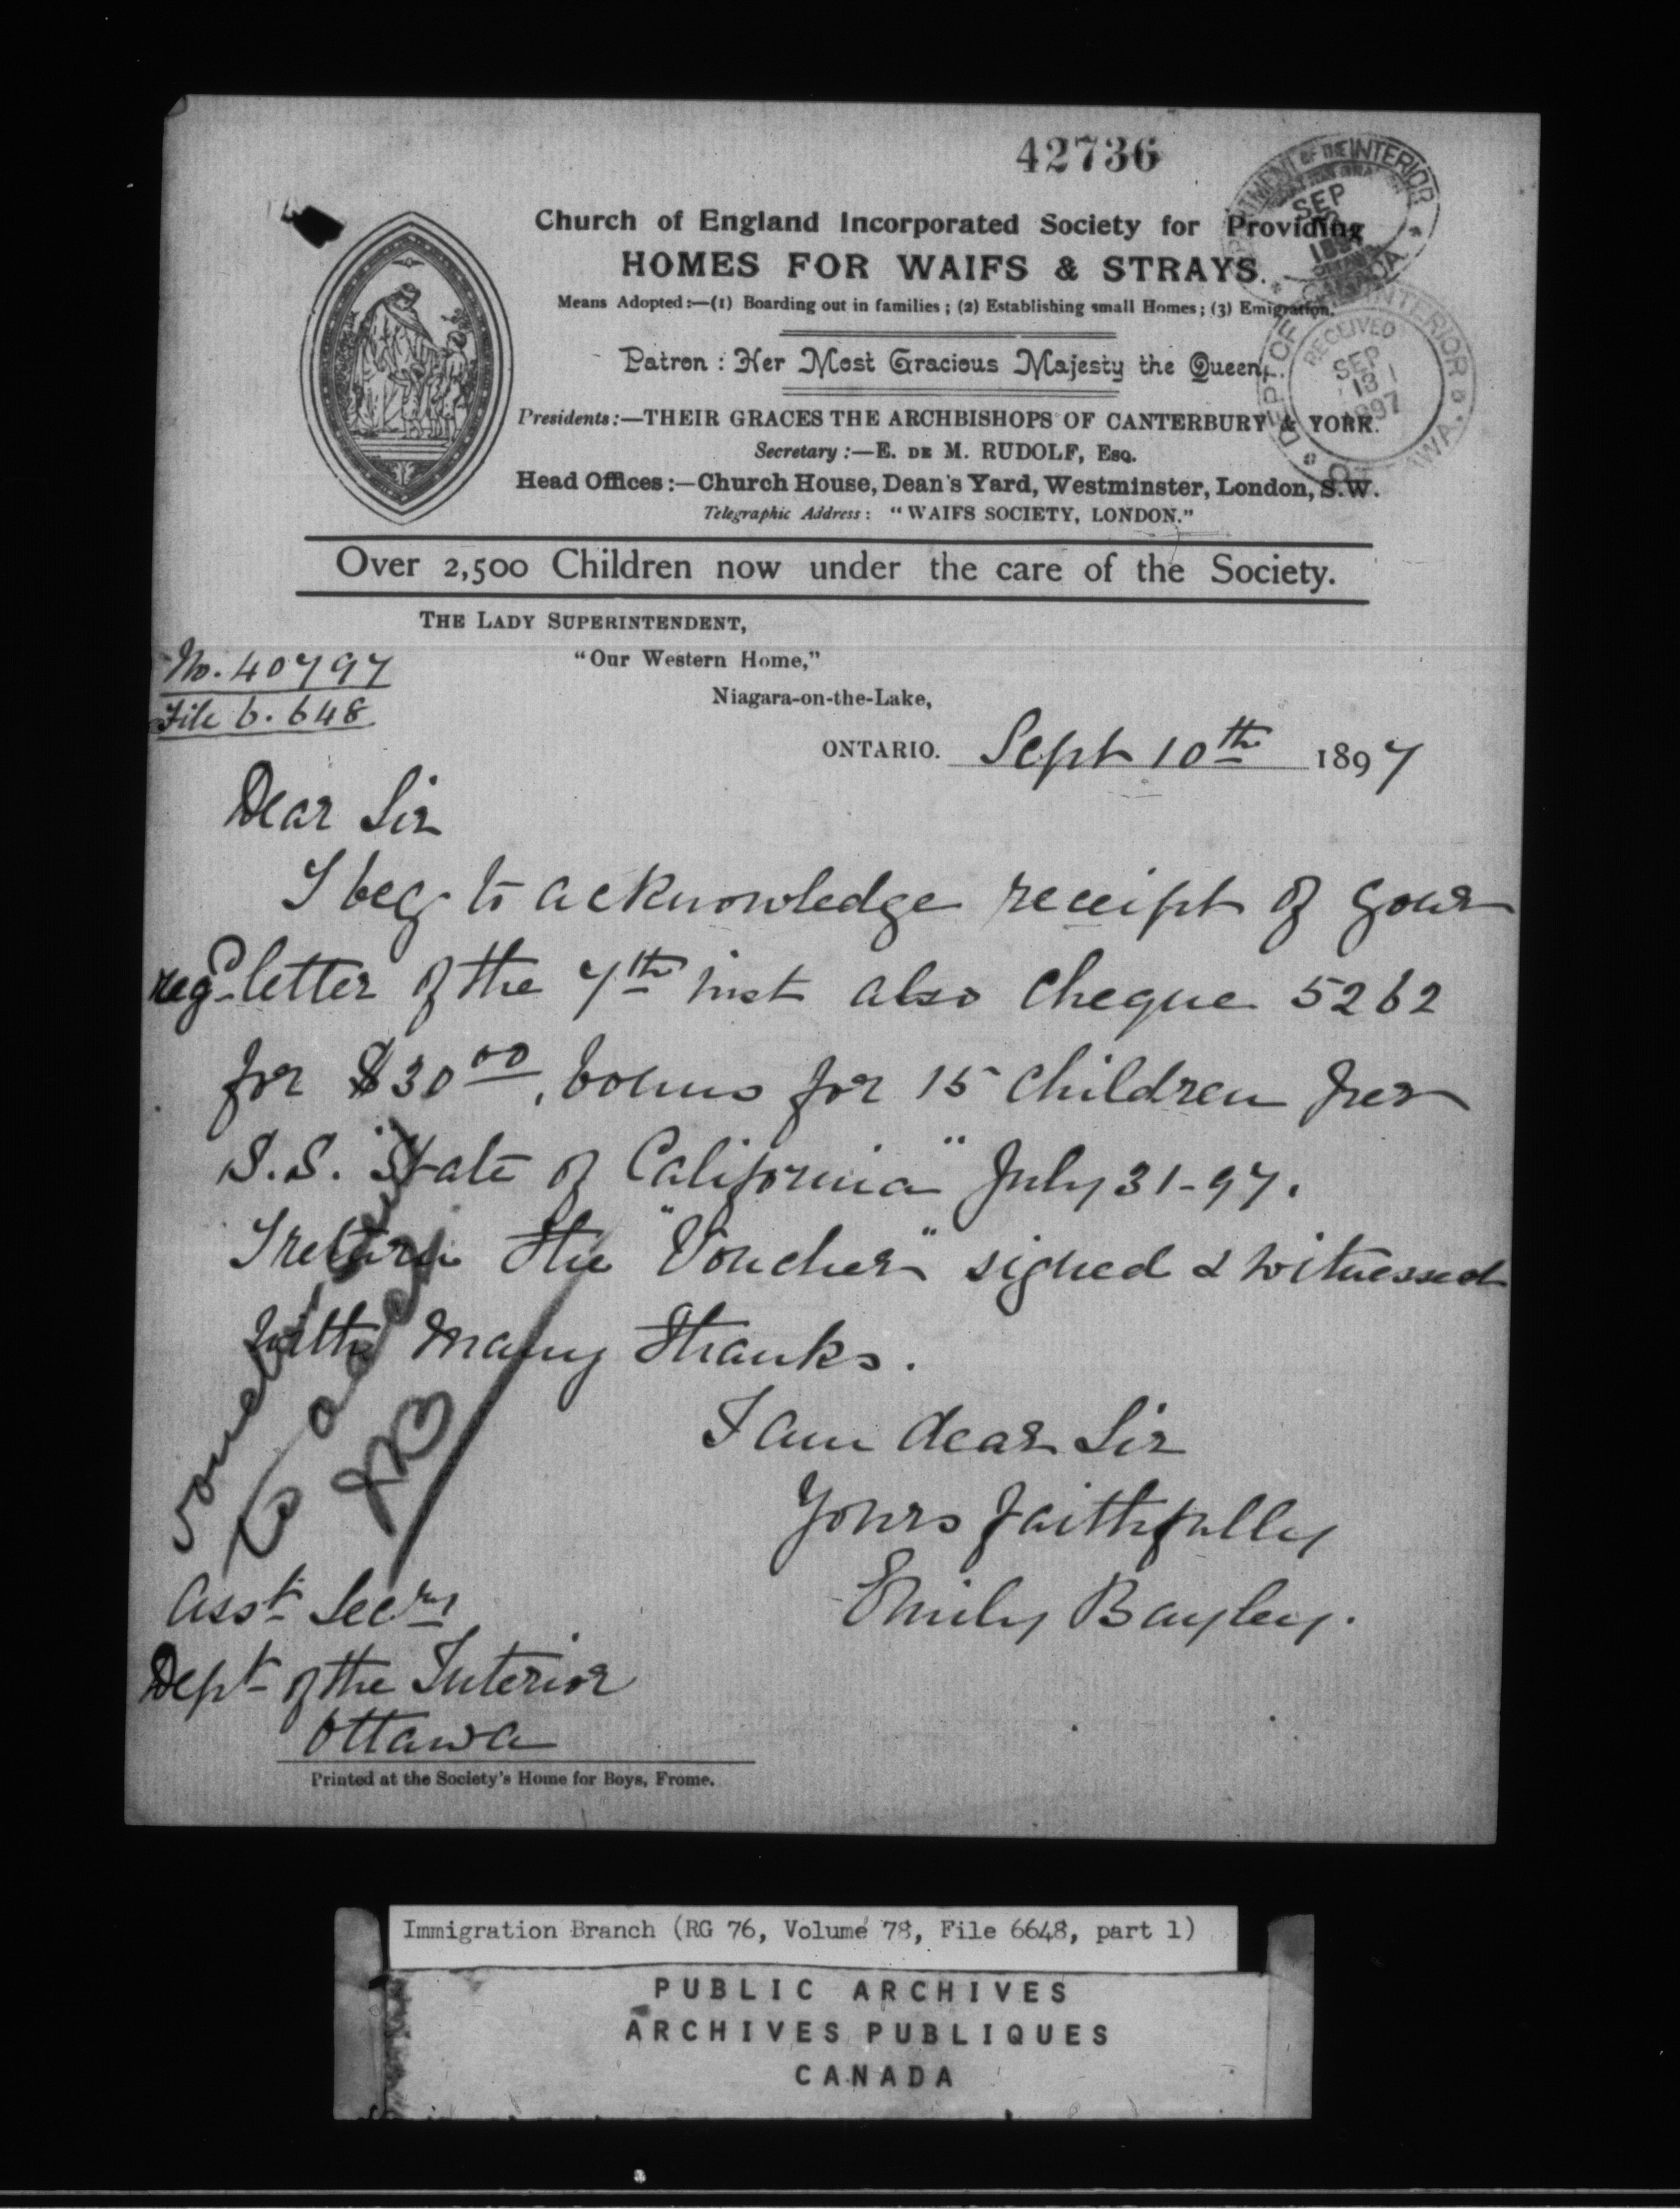 42736
DEPARTMENT OF THE INTERIOR
SEP
1897
CANADA
Church of England Incorporated Society for Providing
HOMES FOR WAIFS & STRAYS.
Means Adopted:—(1) Boarding out in families; (2) Establishing small Homes; (3) Emigration.
Patron: Her Most Gracious Majesty the Queen.
DEPT OF INTERIOR
RECEIVED
SEP
13
1897
OTTAWA.
Presidents:—THEIR GRACES THE ARCHBISHOPS OF CANTERBURY & YORK.
Secretary:—E. DE M. RUDOLF, ESQ.
Head Offices:—Church House, Dean's Yard, Westminster, London, S.W.
Telegraphic Address: "WAIFS SOCIETY, LONDON."
Over 2,500 Children now under the care of the Society.
THE LADY SUPERINTENDENT,
"Our Western Home,"
Niagara-on-the-Lake,
No. 40797
File 6.648
ONTARIO. Sept 10th 1897
Dear Sir
I beg to acknowledge receipt of your
regd letter of the 7th inst also cheque 5262
for $30 00, bonus for 15 children per
S.S. "State of California" July 31-97.
I return the "Voucher" signed & witnessed
with many thanks.
I am dear Sir
Yours faithfully
Emily Bayley.
Asst Secry
Dept of the Interior
Ottawa
Printed at the Society's Home for Boys, Frome.
Immigration Branch (RG 76, Volume 78, File 6648, part 1)
PUBLIC ARCHIVES
ARCHIVES PUBLIQUES
CANADA